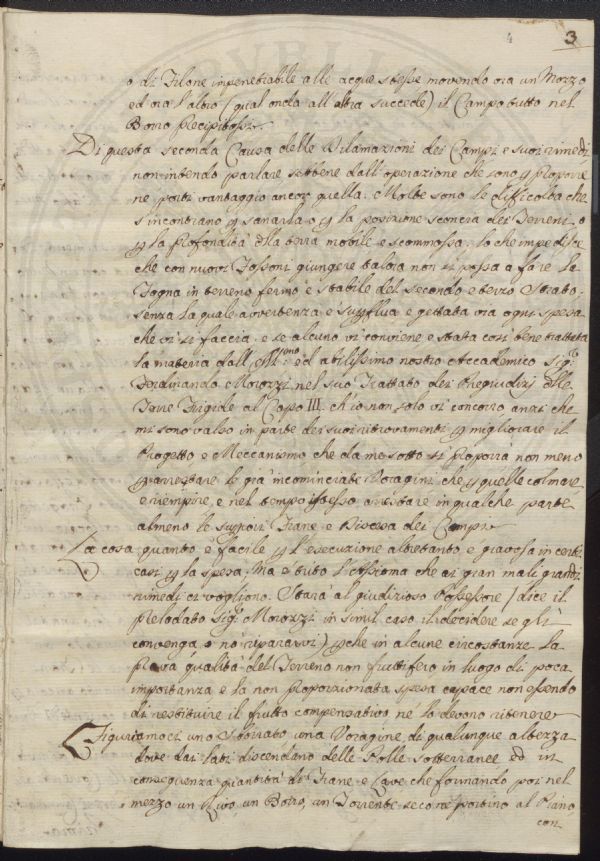 4 3
o di Filone impenetrabile alle acque stesse movendo ora un Mozzo
ed ora l'altro (qual onda all'altra succede) il Campo tutto nel
Borro precipitossi.
Di questa seconda Causa delle Dilamazioni dei Campi e suoi rimedj
non intendo parlare sebbene dall'operazione che sono p proporre
ne porti vantaggio ancor quella. Molte sono le difficoltà che
s'incontrano p sanarla o p la posizione sconcia dei Terreni, o
p la Profondità della terra mobile e scommossa. Lo che impedisce
che con nuovi Fossoni giungere talora non si possa a fare la
Fogna in terreno fermo e stabile del secondo e terzo Strato.
senza la quale avvertenza è suppflua e gettata via ogni spesa
che vi si faccia, e se alcuno vi conviene è stata così bene trattata
la materia dall' ed abilissimo nostro Accademico Sig.r
Ferdinando Morozzi nel suo Trattato dei Pregiudizj delle
Frane Frigide al Capo III. ch'io non solo vi concorro anzi che
mi sono valso in parte dei suoi ritrovamenti p migliorare il
Progetto e Meccanismo che da me sotto si proporrà non meno
p arrestare le già incominciate Voragini che p quelle colmare
e riempire, e nel tempo istesso arrestare in qualche parte
almeno le suppori Frane e Discesa dei Campi.
La cosa quanto è facile p l'esecuzione altretanto è gravosa in certi
casi p la spesa. Ma è tuto l'Assioma che ai gran mali grandi
rimedi ci vogliono. Starà al giudizioso Possessore / dice il
Prelodato Sig.r Morozzi in simil caso il decidere se gli
convenga o no ripararvi) p che in alcune circostanze la
Prava qualità del Terreno non fruttifero in luogo di poca
importanza e la non proporzionata spesa capace non essendo
di restituire il frutto compensativo nè lo devono ritenere
Figuriamoci uno Sborrato una Voragine di qualunque altezza
dove dai lati discendano delle Polle sotterranee ed in
conseguenza quantità di Frane e Lave che formando poi nel
mezzo un Rivo, un Borro, un Torrente seco ne portino al Piano,
con